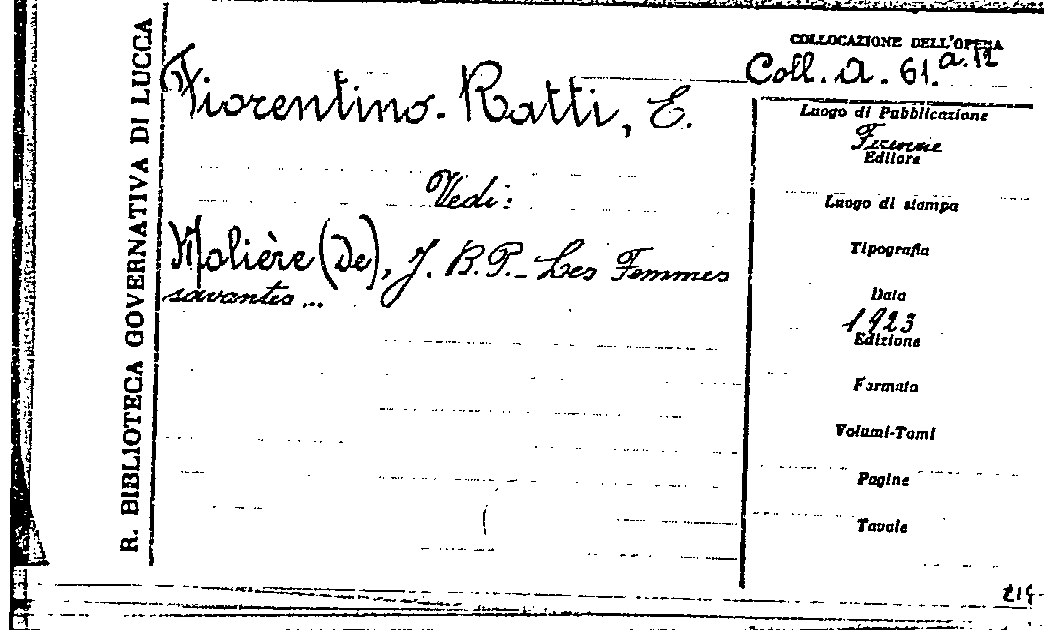 R. BIBLIOTECA GOVERNATIVA DI LUCCA
Fiorentino-Ratti, E.
Vedi:
Molière (De), J. B. P. - Les Femmes
savantes ...
COLLOCAZIONE DELL'OPERA
Coll. A. 61. a. 12
Luogo di Pubblicazione
Firenze
Editore
Luogo di stampa
Tipografia
Data
1923
Edizione
Formato
Volumi-Tomi
Pagine
Tavole